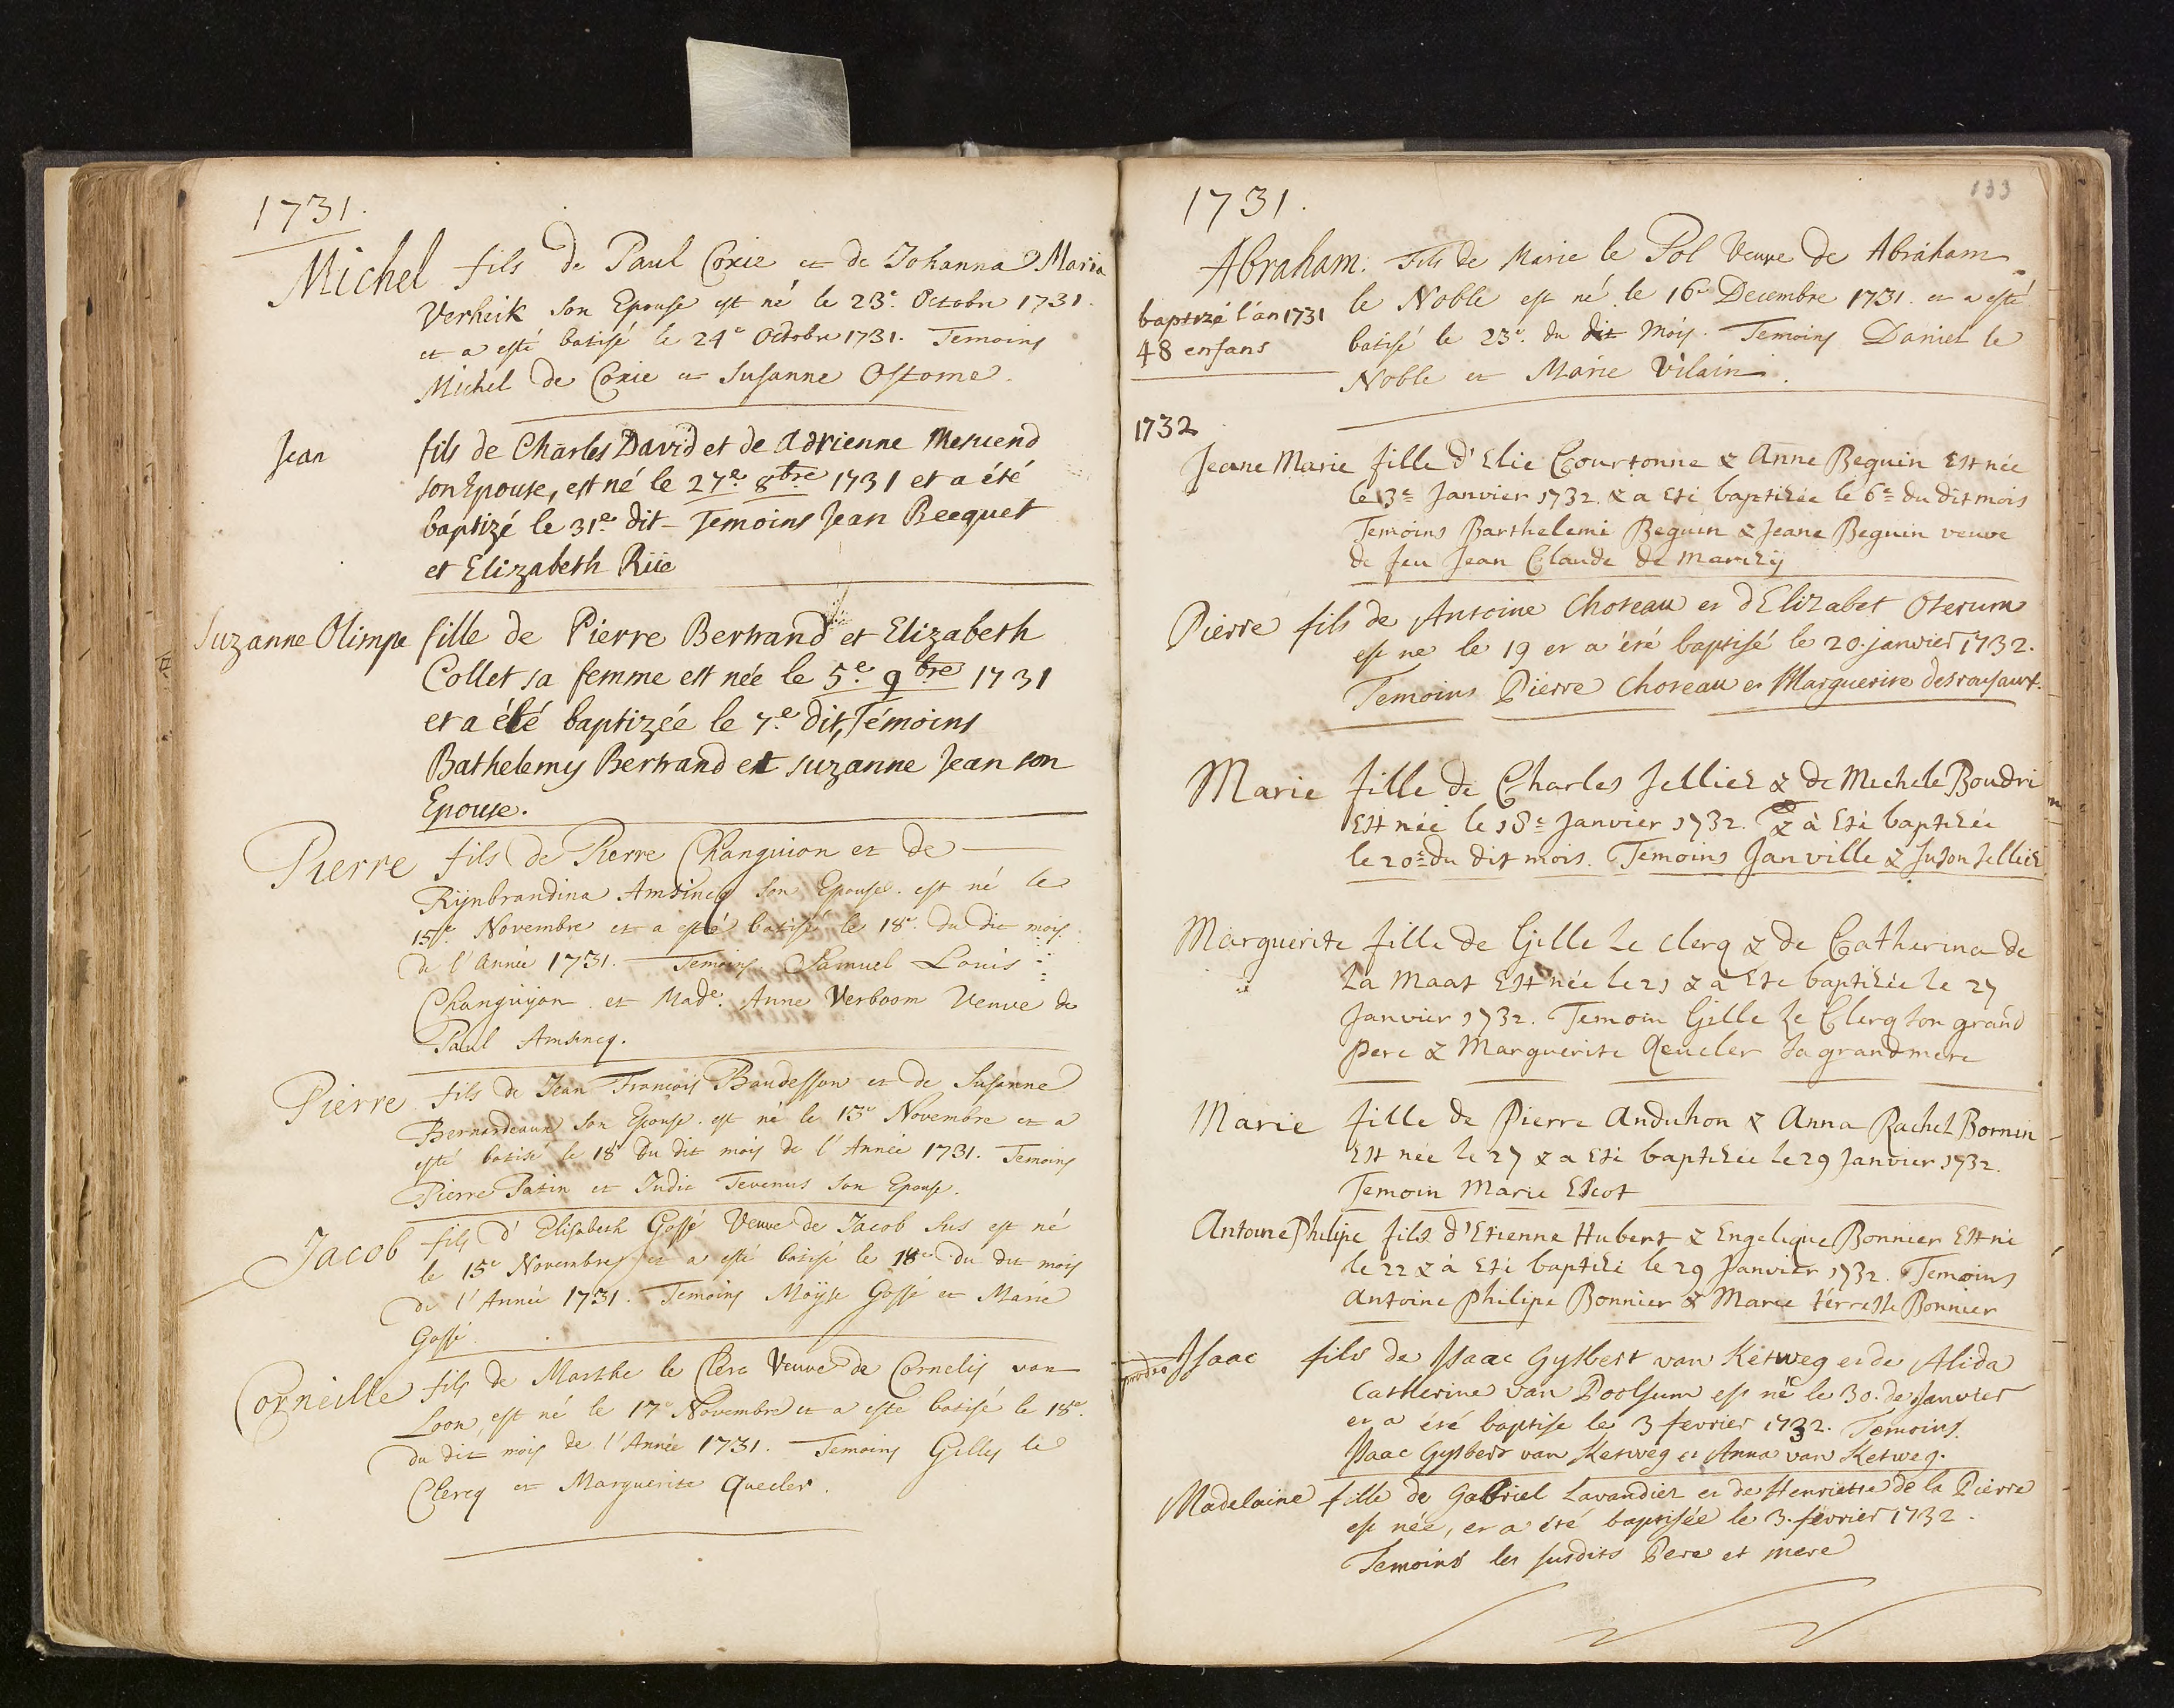 1731.
Michel fils de Paul Coxie et de Johanna Maria
Verheik son Epouse est né le 23e. Octobre 1731.
et a esté batisé le 24e Octobre 1731. Temoins
Michel de Coxie et Susanne Ostome.
Jean fils de Charles David et de Adrienne
son Epouse, est né le 27e. 8bre 1731 et a été
baptizé le 31e. dit - Temoins Jean Becquet
et Elizabeth Rüe
Suzanne Olimpe fille de Pierre Bertrand et Elizabeth
Collet sa femme est née le 5e. 9bre 1731
et a été baptizée le 7e. dit, Témoins
Bathelemy Bertrand et suzanne Jean son
Epouse.
Pierre fils de Pierre Changuion et de
Rijnbrandina Amsincq son Epouse. est né le
15e. Novembre et a esté batisé le 18e. du dit mois
de l'Année 1731. Temoins Samuel Louis
Changuyon et Made. Anne Verboom Veuve de
Paul Amsincq.
Pierre fils de Jean François Baudesson et de Susanne
Bernardeaux son Epouse. est né le 13e Novembre et a
esté batisé le 18e du dit mois de l'Année 1731. Temoins
Pierre Patin et Judic Tevenus son Epouse.
Jacob fils d'Elisabeth Gossé Veuve de Jacob Sus est né
le 15e Novembre et a esté batisé le 18e du dit mois
de l'Année 1731. Temoins Moyse Gossé et Marie
Gossé.
Corneille fils de Marthe le Clerc Veuve de Cornelis van
Loon, est né le 17e Novembre et a esté batisé le 18e.
du dit mois de l'Année 1731. Temoins Gilles le
Clercq et Marguerite Quecler.
133
1731.
Abraham. Fils de Marie le Pol Veuve de Abraham
le Noble est né le 16e Decembre 1731. et a esté
baptizé l'an 1731
48 enfans
batisé le 23e. du dit Mois. Temoins Daniel le
Noble et Marie Vilain.
1732
Jeane Marie fille d'Elie Courtonne & Anne Beguin Est née
le 3e Janvier 1732. & a Eté baptizée le 6e du dit mois
Temoins Barthelemi Beguin & Jeane Beguin veuve
de feu Jean Claude de Marczÿ
Pierre fils de Antoine Choteau et d'Elizabet Oterum
est ne le 19 et a été baptisé le 20. janvier 1732.
Temoins Pierre Choteau et Marguerite desrousaux.
Marie fille de Charles Jelliez & de Michele Boudri
Est née le 18e Janvier 1732. & à Eté baptizée
le 20e du dit mois. Temoins Janville & Suson Jelliez
Marguerite fille de Gille Le Clerq & de Catharina de
La Maat Est née le 21 & à Ete baptizée le 27
Janvier 1732. Temoin Gille Le Clerq son grand
pere & Marguerite Qeucler sa grandmere
Marie fille de Pierre Anduhon & Anna Rachel Bornen
Est née le 27 & a Eté baptizée le 29 Janvier 1732.
Temoin Marie Escot
Antoine Philipe fils d'Etienne Hubert & Engelique Bonnier Est né
le 22 & à Eté baptizé le 29 Janvier 1732. Temoins
Antoine Philipe Bonnier & Marie térresse Bonnier
Isaac fils de Isaac Gysbert van Ketweg et de Alida
Catherine van Poolsum est né le 30. de Janvier
et a été baptise le 3 fevrier 1732. Temoins.
Isaac Gysbert van Ketweg et Anna van Ketweg.
Madelaine fille de Gabriel Lavandier et de Henriette de la Pierre
est née, et a été baptisée le 3. fevrier 1732.
Temoins les susdits Pere et mere